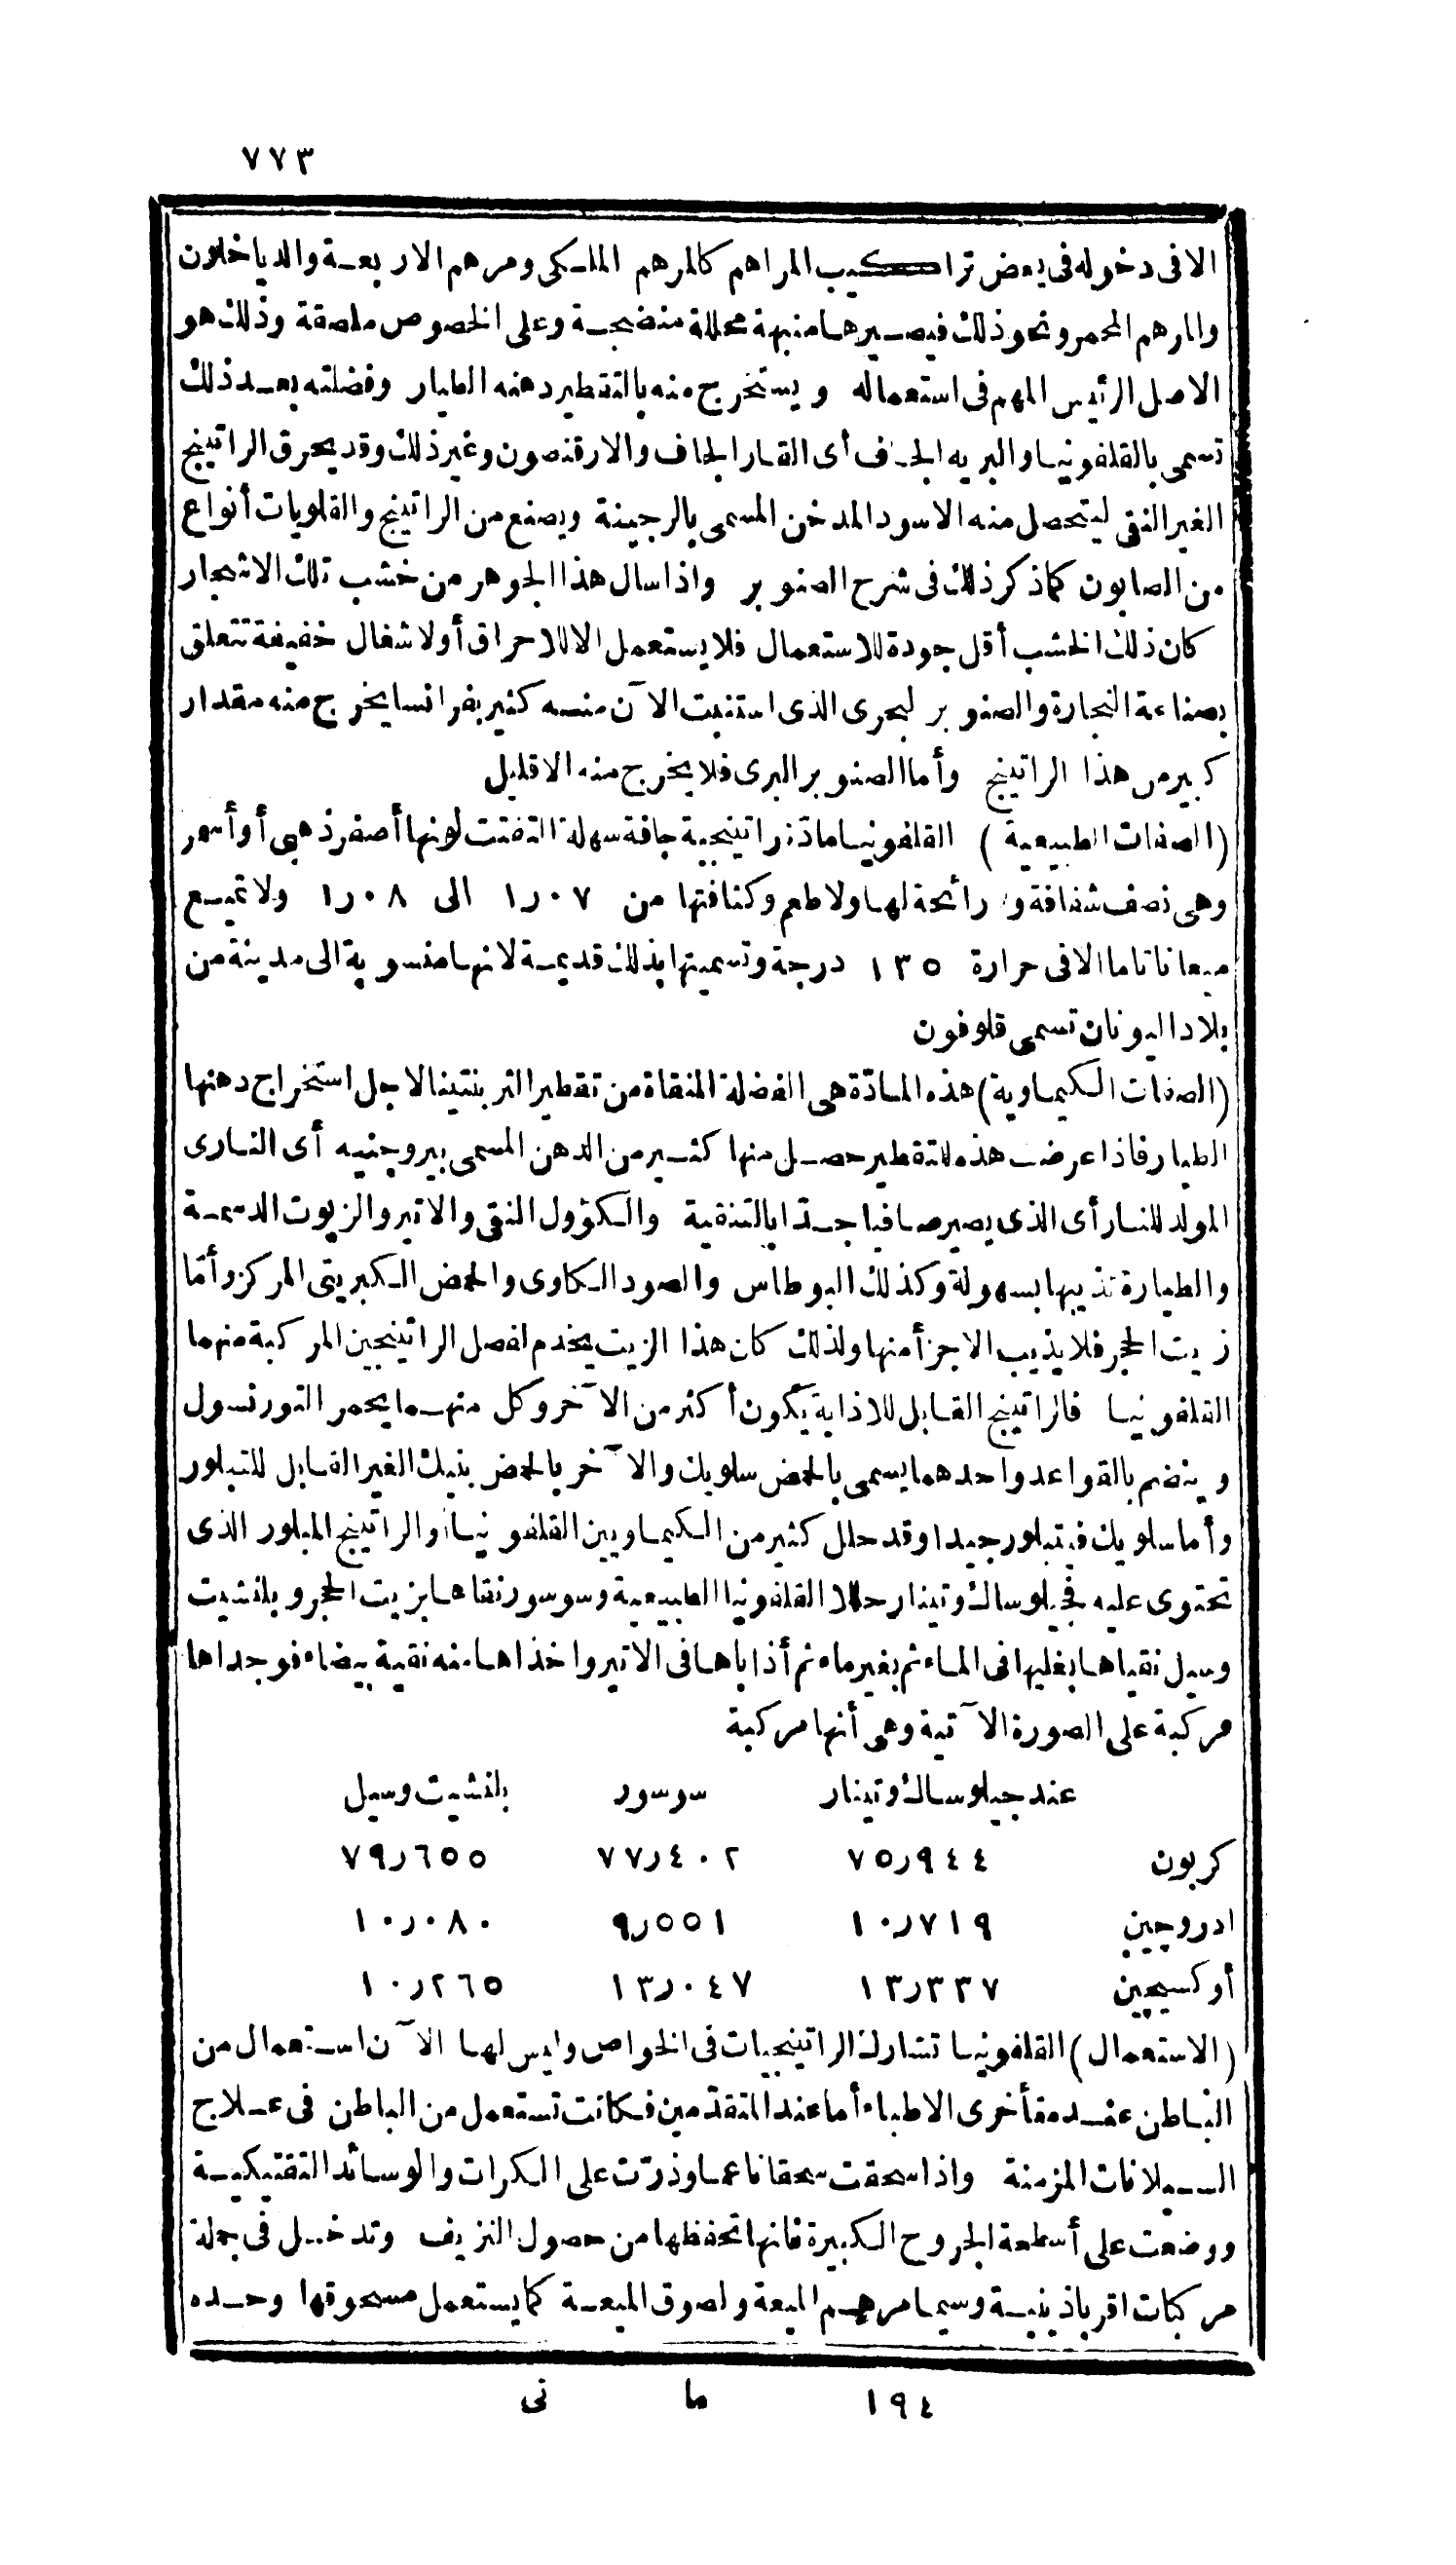 ٧٧٣
الا فى دخوله فى بعض تراكيب المراهم كالمرهم الملكى ومرهم الاربعة والدياخلون
والمرهم المحمر ونحو ذلك فيصيرها منبهة محللة منضجة وعلى الخصوص ملصقة وذلك هو
الاصل الرئيس المهم فى استعماله ويستخرج منه بالتقطير دهنه الطيار وفضلته بعد ذلك
تسمى بالقلفونيا والبريه الجاف أى القار الجاف والارقنصون وغير ذلك وقد يحرق الراتينج
الغير النقى ليتحصل منه الاسود المدخن المسمى بالرجينة ويصنع من الراتينج والقلويات أنواع
من الصابون كما ذكر ذلك فى شرح الصنوبر واذا سال هذا الجوهر من خشب تلك الاشجار
كان ذلك الخشب أقل جودة للاستعمال فلا يستعمل الا للاحراق أولا شغال خفيفة تتعلق
بصناعة النجارة والصنوبر لبحرى الذى استنبت الآن منه كثير بفرانسا يخرج منه مقدار
كبير من هذا الراتينج وأما الصنوبر البرى فلا يخرج منه الا قليل
(الصفات الطبيعية) القلفونيا مادة راتينجية جافة سهلة التفتت لونها أصفر ذهبى أو أسمر
وهى نصف شفافة و رائحة لها ولا طعم وكثافتها من ١٫٠٧ الى ١٫٠٨ ولا تميع
ميعانا تاما الا فى حرارة ١٣٥ درجة وتسميتها بذلك قديمة لانها منسوبة الى مدينة من
بلاد اليونان تسمى قلوفون
(الصفات الكيماوية) هذه المادّة هى الفضلة المنقاة من تقطير التربنتينا لاجل استخراج دهنها
الطيار فاذا عرضت هذه للتقطير حصل منها كثير من الدهن المسمى بيروجنيه أى النارى
المولد للنار أى الذى يصير صافيا جدّا بالتنقية والكؤول النقى والاتير والزيوت الدسمة
والطيارة تذيبها بسهولة وكذلك البوطاس والصود الكاوى والحمض الكبريتى المركز وأمّا
زيت الحجر فلا يذيب الا جزأ منها ولذلك كان هذا الزيت يخدم لفصل الراتينجين المركبة منهما
القلفونيا فالراتينج القابل للاذابة يكون أكثر من الآخر وكل منهما يحمر التورنسول
وينضم بالقواعد واحدهما يسمى بالحمض سلويك والآخر بالحمض بنيك الغير القابل للتبلور
وأما سلويك فيتبلور جيدا وقد حلل كثير من الكيماويين القلفونيا والراتينج المبلور الذى
تحتوى عليه فجيلوساك وتينار حللا القلفونيا الطبيعية وسوسور نقاها بزيت الحجر وبلنشيت
وسيل نقياها بغليها فى الماء ثم بغير ماء ثم أذاباها فى الاتير واخذاها منه نقية بيضاء فوجداها
مركبة على الصورة الآتية وهى أنها مركبة
عند جيلوساك وتينار سوسور بلنشيت وسيل
كربون ٧٥٫٩٤٤ ٧٧٫٤٠٢ ٧٩٫٦٥٥
ادروچين ١٠٫٧١٩ ٩٫٥٥١ ١٠٫٠٨٠
أوكسيچين ١٣٫٣٣٧ ١٣٫٠٤٧ ١٠٫٢٦٥
(الاستعمال) القلفونيا تشارك الراتينجيات فى الخواص وليس لها الآن استعمال من
الباطن عند متأخرى الاطباء أما عند المتقدّمين فكانت تستعمل من الباطن فى علاج
السيلانات المزمنة واذا سحقت سحقا ناعما وذرّت على الكرات والوسائد التفتيكية
ووضعت على أسطحة الجروح الكبيرة فانها تحفظها من حصول النزيف وتدخل فى جملة
مركبات اقرباذينية وسيما مرهم الميعة ولصوق الميعة كما يستعمل مسحوقها وحده
١٩٤ ما نى